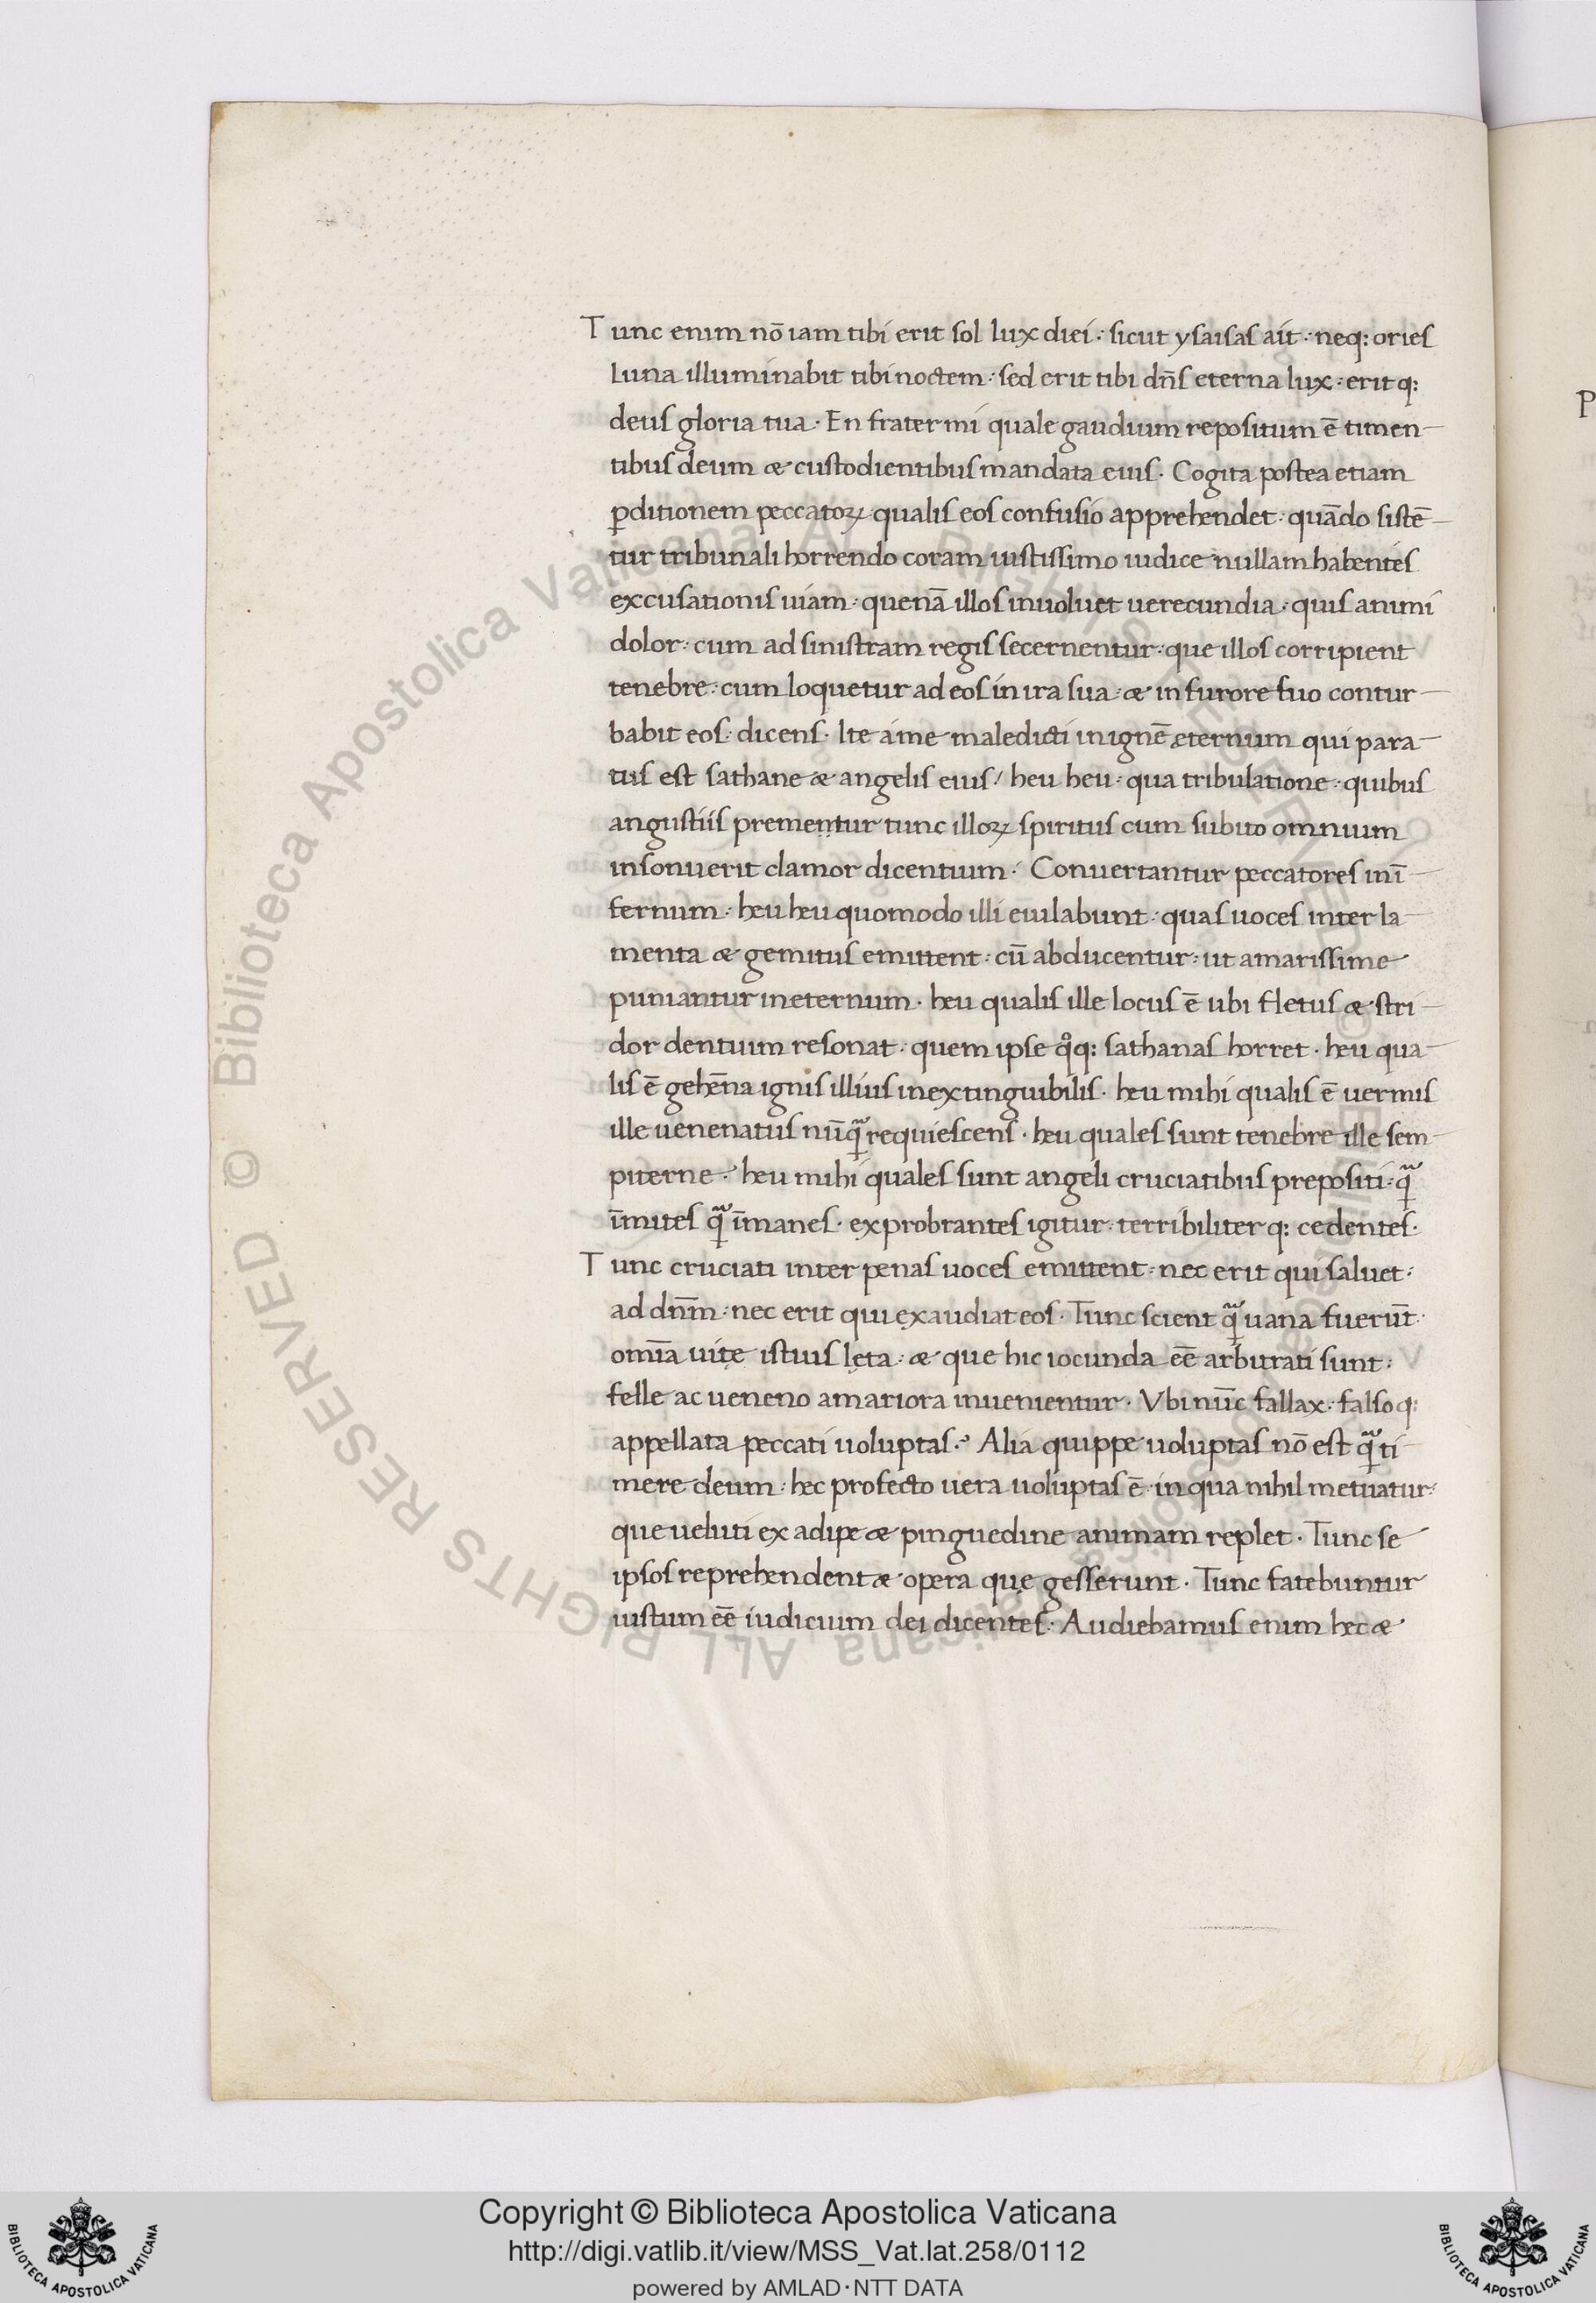 Tunc enim nō iam tibi erit sol lux diei: sicut ysaisas ait: neq: ories
Luna illuminabit tibi noctem: sed erit tibi dn̄s eterna lux: erit q:
deus gloria tua. En frater mi quale gaudium repositum ē timen-
tibus deum & custodientibus mandata eius. Cogita postea etiam
ꝑditionem peccatoꝝ qualis eos confusio apprehendet: quādo sistē-
tur tribunali horrendo coram iustissimo iudice nullam habentes
excusationis uiam: quenā illos inuoluet uerecundia: quis animi
dolor: cum ad sinistram regis secernentur: que illos corripient
tenebre: cum loquetur ad eos in ira sua: & in furore suo contur-
babit eos: dicens. Ite a me maledicti in ignē æternum qui para-
tus est sathane & angelis eius! heu heu: qua tribulatione: quibus
angustiis prementur tunc illoꝝ spiritus cum subito omnium
insonuerit clamor dicentium. Conuertantur peccatores in ī-
fernum: heu heu quomodo illi eiulabunt: quas uoces inter la-
menta & gemitus emittent: cū abducentur: ut amarissime
puniantur in eternum. heu qualis ille locus ē ubi fletus & stri-
dor dentium resonat: quem ipse qͦq: sathanas horret. heu qua-
lis ē gehēna ignis illius inextinguibilis. heu mihi qualis ē uermis
ille uenenatus nūqᷓ requiescens. heu quales sunt tenebre ille sem-
piterne. heu mihi quales sunt angeli cruciatibus prepositi: qᷓ
īmites qᷓ īmanes. exprobrantes igitur: terribiliter q: cedentes.
Tunc cruciati inter penas uoces emittent: nec erit qui saluet:
ad dn̄m: nec erit qui exaudiat eos. Tunc scient qᷓ uana fuerūt
omīa uitę istius lęta: & que hic iocunda eē arbitrati sunt:
felle ac ueneno amariora inuenientur. Vbi nūc fallax: falso q:
appellata peccati uoluptas? Alia quippe uoluptas nō est qᷓ ti-
mere deum: hec profecto uera uoluptas ē: in qua nihil metuatur:
que ueluti ex adipe & pinguedine animam replet. Tunc se
ipsos reprehendent & opera quę gesserunt. Tunc fatebuntur
iustum eē iudicium dei dicentes: Audiebamus enim hec &
P
© Biblioteca Apostolica Vaticana ALL RIGHTS RESERVED
Copyright © Biblioteca Apostolica Vaticana
http://digi.vatlib.it/view/MSS_Vat.lat.258/0112
powered by AMLAD·NTT DATA
BIBLIOTECA APOSTOLICA VATICANA
BIBLIOTECA APOSTOLICA VATICANA